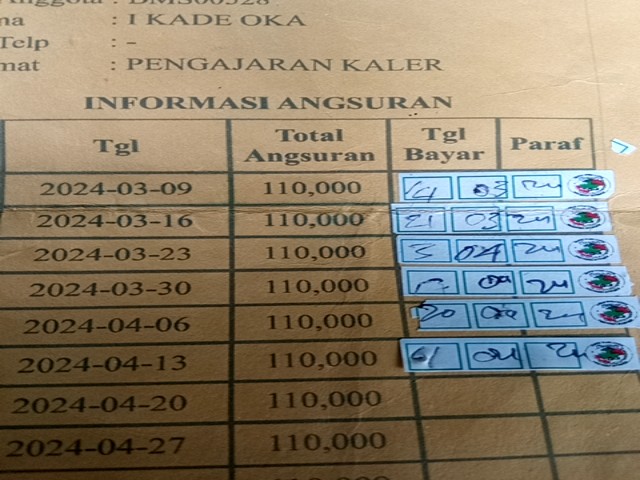 : DMS00328
: I KADE OKA
Telp : -
mat : PENGAJARAN KALER
INFORMASI ANGSURAN
Tgl Total Angsuran Tgl Bayar Paraf
2024-03-09 110,000 14 03 24
2024-03-16 110,000 21 03 24
2024-03-23 110,000 3 04 24
2024-03-30 110,000 04 24
2024-04-06 110,000 20 04 24
2024-04-13 110,000 04 24
2024-04-20 110,000
2024-04-27 110,000
110,000